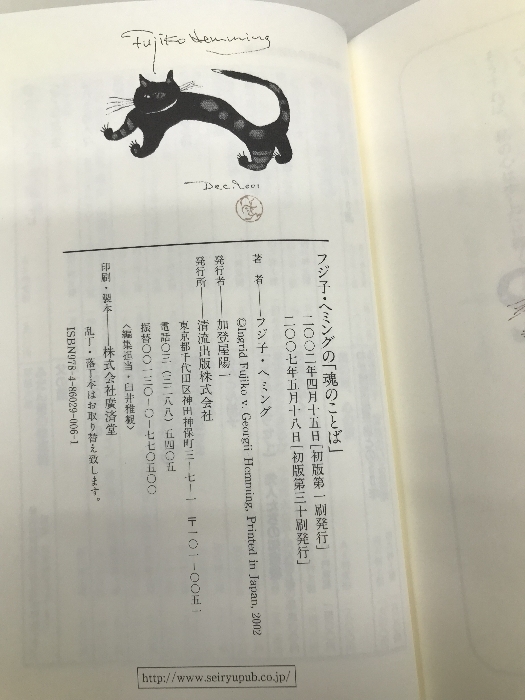 Fujiko Hemming
Dec. 2001
フジ子・ヘミングの「魂のことば」
二〇〇二年四月十五日[初版第一刷発行]
二〇〇七年五月十八日[初版第三十刷発行]
著 者――フジ子・ヘミング
©Ingrid Fujiko v. Georgii Hemming, Printed in Japan, 2002
発行者――加登屋陽一
発行所――清流出版株式会社
東京都千代田区神田神保町三-七-一 〒一〇一-〇〇五一
電話〇三(三二八八)五四〇五
振替〇〇一三〇-〇-七七〇五〇〇
〈編集担当・臼井雅観〉
印刷・製本――株式会社廣済堂
乱丁・落丁本はお取り替え致します。
ISBN978-4-86029-006-1
http://www.seiryupub.co.jp/